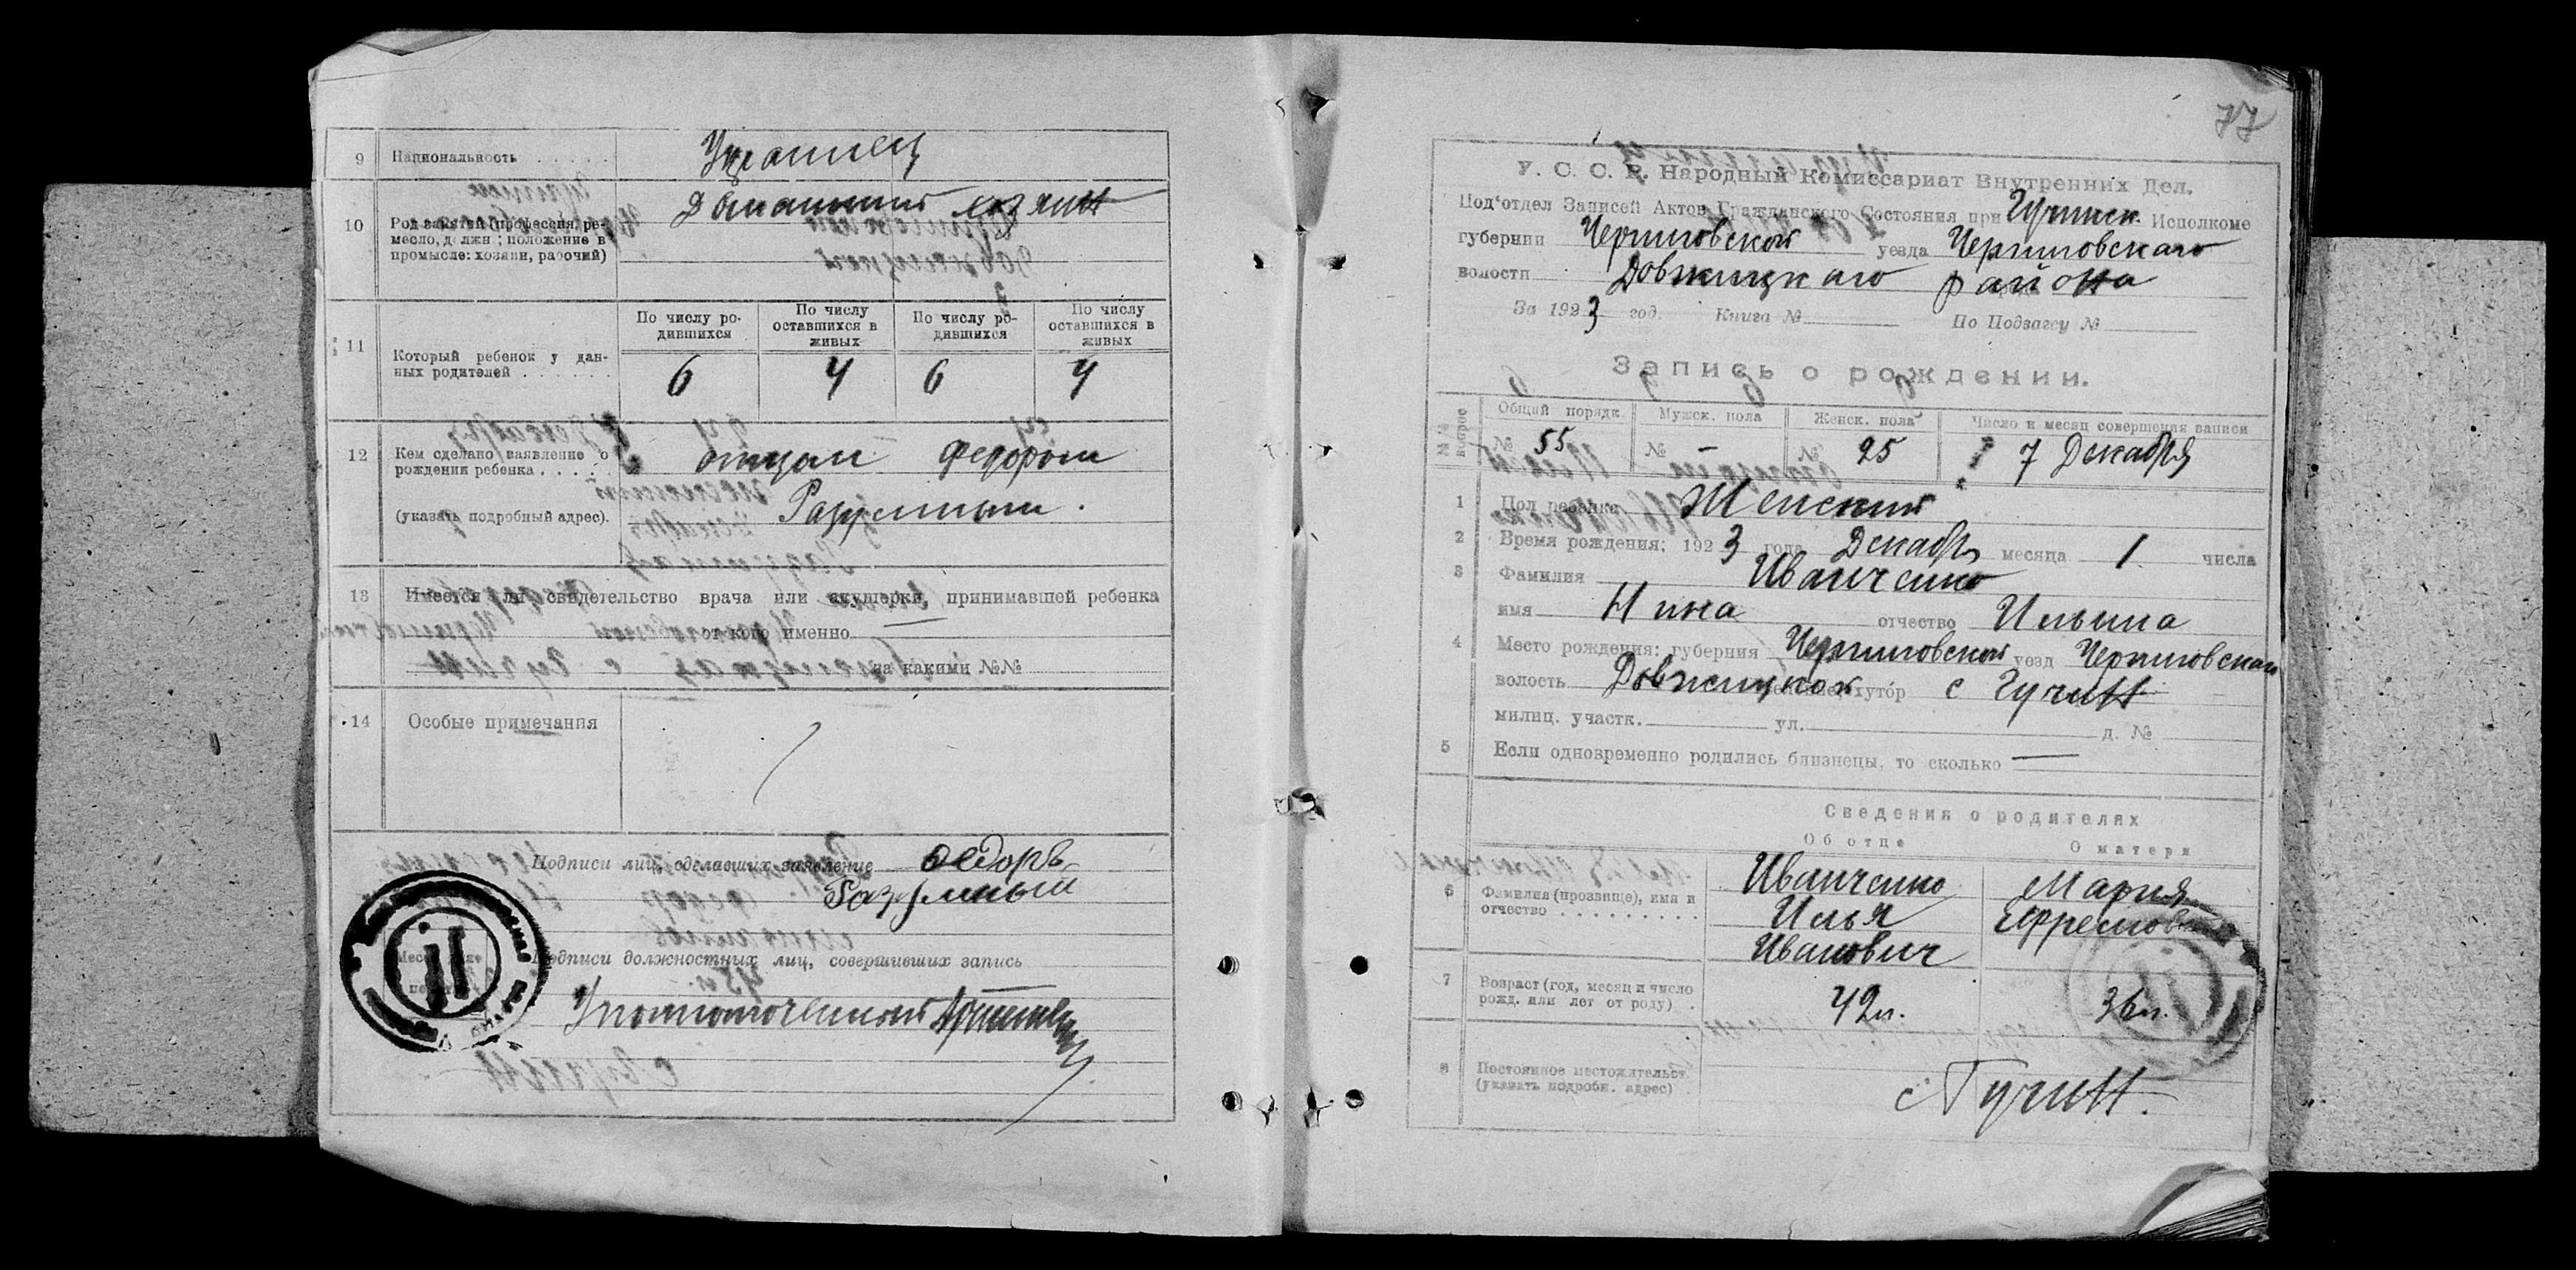 9 Национальность . . . . . Украинец
10 Род занятий (профессия, ре-
месло, должн.; положение в
промысле: хозяин, рабочий)
Домашний хозяин
По числу ро-
дившихся
По числу
оставшихся в
живых
По числу ро-
дившихся
По числу
оставшихся в
живых
11 Который ребенок у дан-
ных родителей . . . . . . .
6 4 6 4
12 Кем сделано заявление о
рождении ребенка . . . . .
(указать подробный адрес).
отцом Федором
Разумным.
13 Имеется ли свидетельство врача или акушерки, принимавшей ребенка
от кого именно —
за какими №№
14 Особые примечания
Подписи лиц, сделавших заявление Федоръ
Разумный
Подписи должностных лиц, совершивших запись
Уполномоченный
77
У. С. С. Р. Народный Комиссариат Внутренних Дел.
Под'отдел Записей Актов Гражданского Состояния при Гучинск. Исполкоме
губернии Черниговской уезда Черниговскаго
волости Довжицкаго района
За 1923 год. Книга № По Подзагсу №
Запись о рождении.
№№ вопрос
Общий порядк. Мужск. пола Женск. пола Число и месяц совершения записи
№ 55 № — № 25 7 Декабря
1 Пол ребенка Женский
2 Время рождения: 1923 года Декабрь месяца 1 числа
3 Фамилия Иванченко
имя Нина отчество Ильина
4 Место рождения: губерния Черниговской уезд Черниговскаго
волость Довжицкой хутор с Гучин
милиц. участк. ул. д. №
5 Если одновременно родились близнецы, то сколько —
Сведения о родителях
Об отце О матери
6 Фамилия (прозвище), имя и
отчество . . . . . . . . . .
Иванченко
Илья
Иванович
Мария
Ефремов
7 Возраст (год, месяц и число
рожд. или лет от роду)
42 л. 36 л.
8 Постоянное местожительст.
(указать подробн. адрес)
с Гучин.